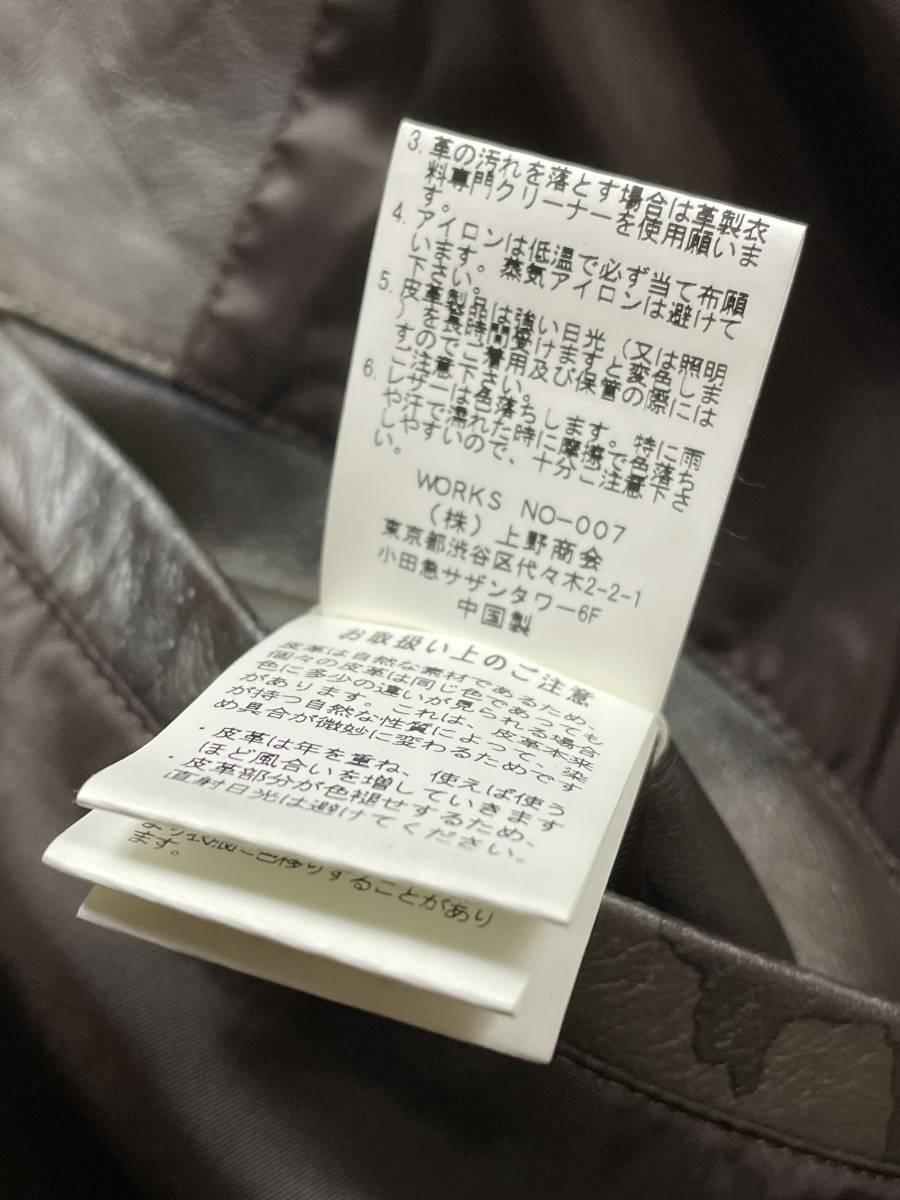 3. 革の汚れを落とす場合は革製衣
料専門クリーナーを使用願いま
す。
4. アイロンは低温で必ず当て布願
います。蒸気アイロンは避けて
下さい。
5. 皮革製品は強い日光(又は照明
)を長時間受けますと変色しま
すのでご着用及び保管の際には
ご注意下さい。
6. レザーは色落ちします。特に雨
や汗で濡れた時に摩擦で色落ち
しやすいので、十分ご注意下さ
い。
WORKS NO-007
(株)上野商会
東京都渋谷区代々木2-2-1
小田急サザンタワー6F
中国製
お取扱い上のご注意
皮革は自然な素材であるため、
個々の皮革は同じ色であっても
色に多少の違いが見られる場合
があります。これは、皮革本来
が持つ自然な性質によって、染
め具合が微妙に変わるためです
・皮革は年を重ね、使えば使う
ほど風合いを増していきます
・皮革部分が色褪せするため、
直射日光は避けてください。
色移りすることがあり
ます。